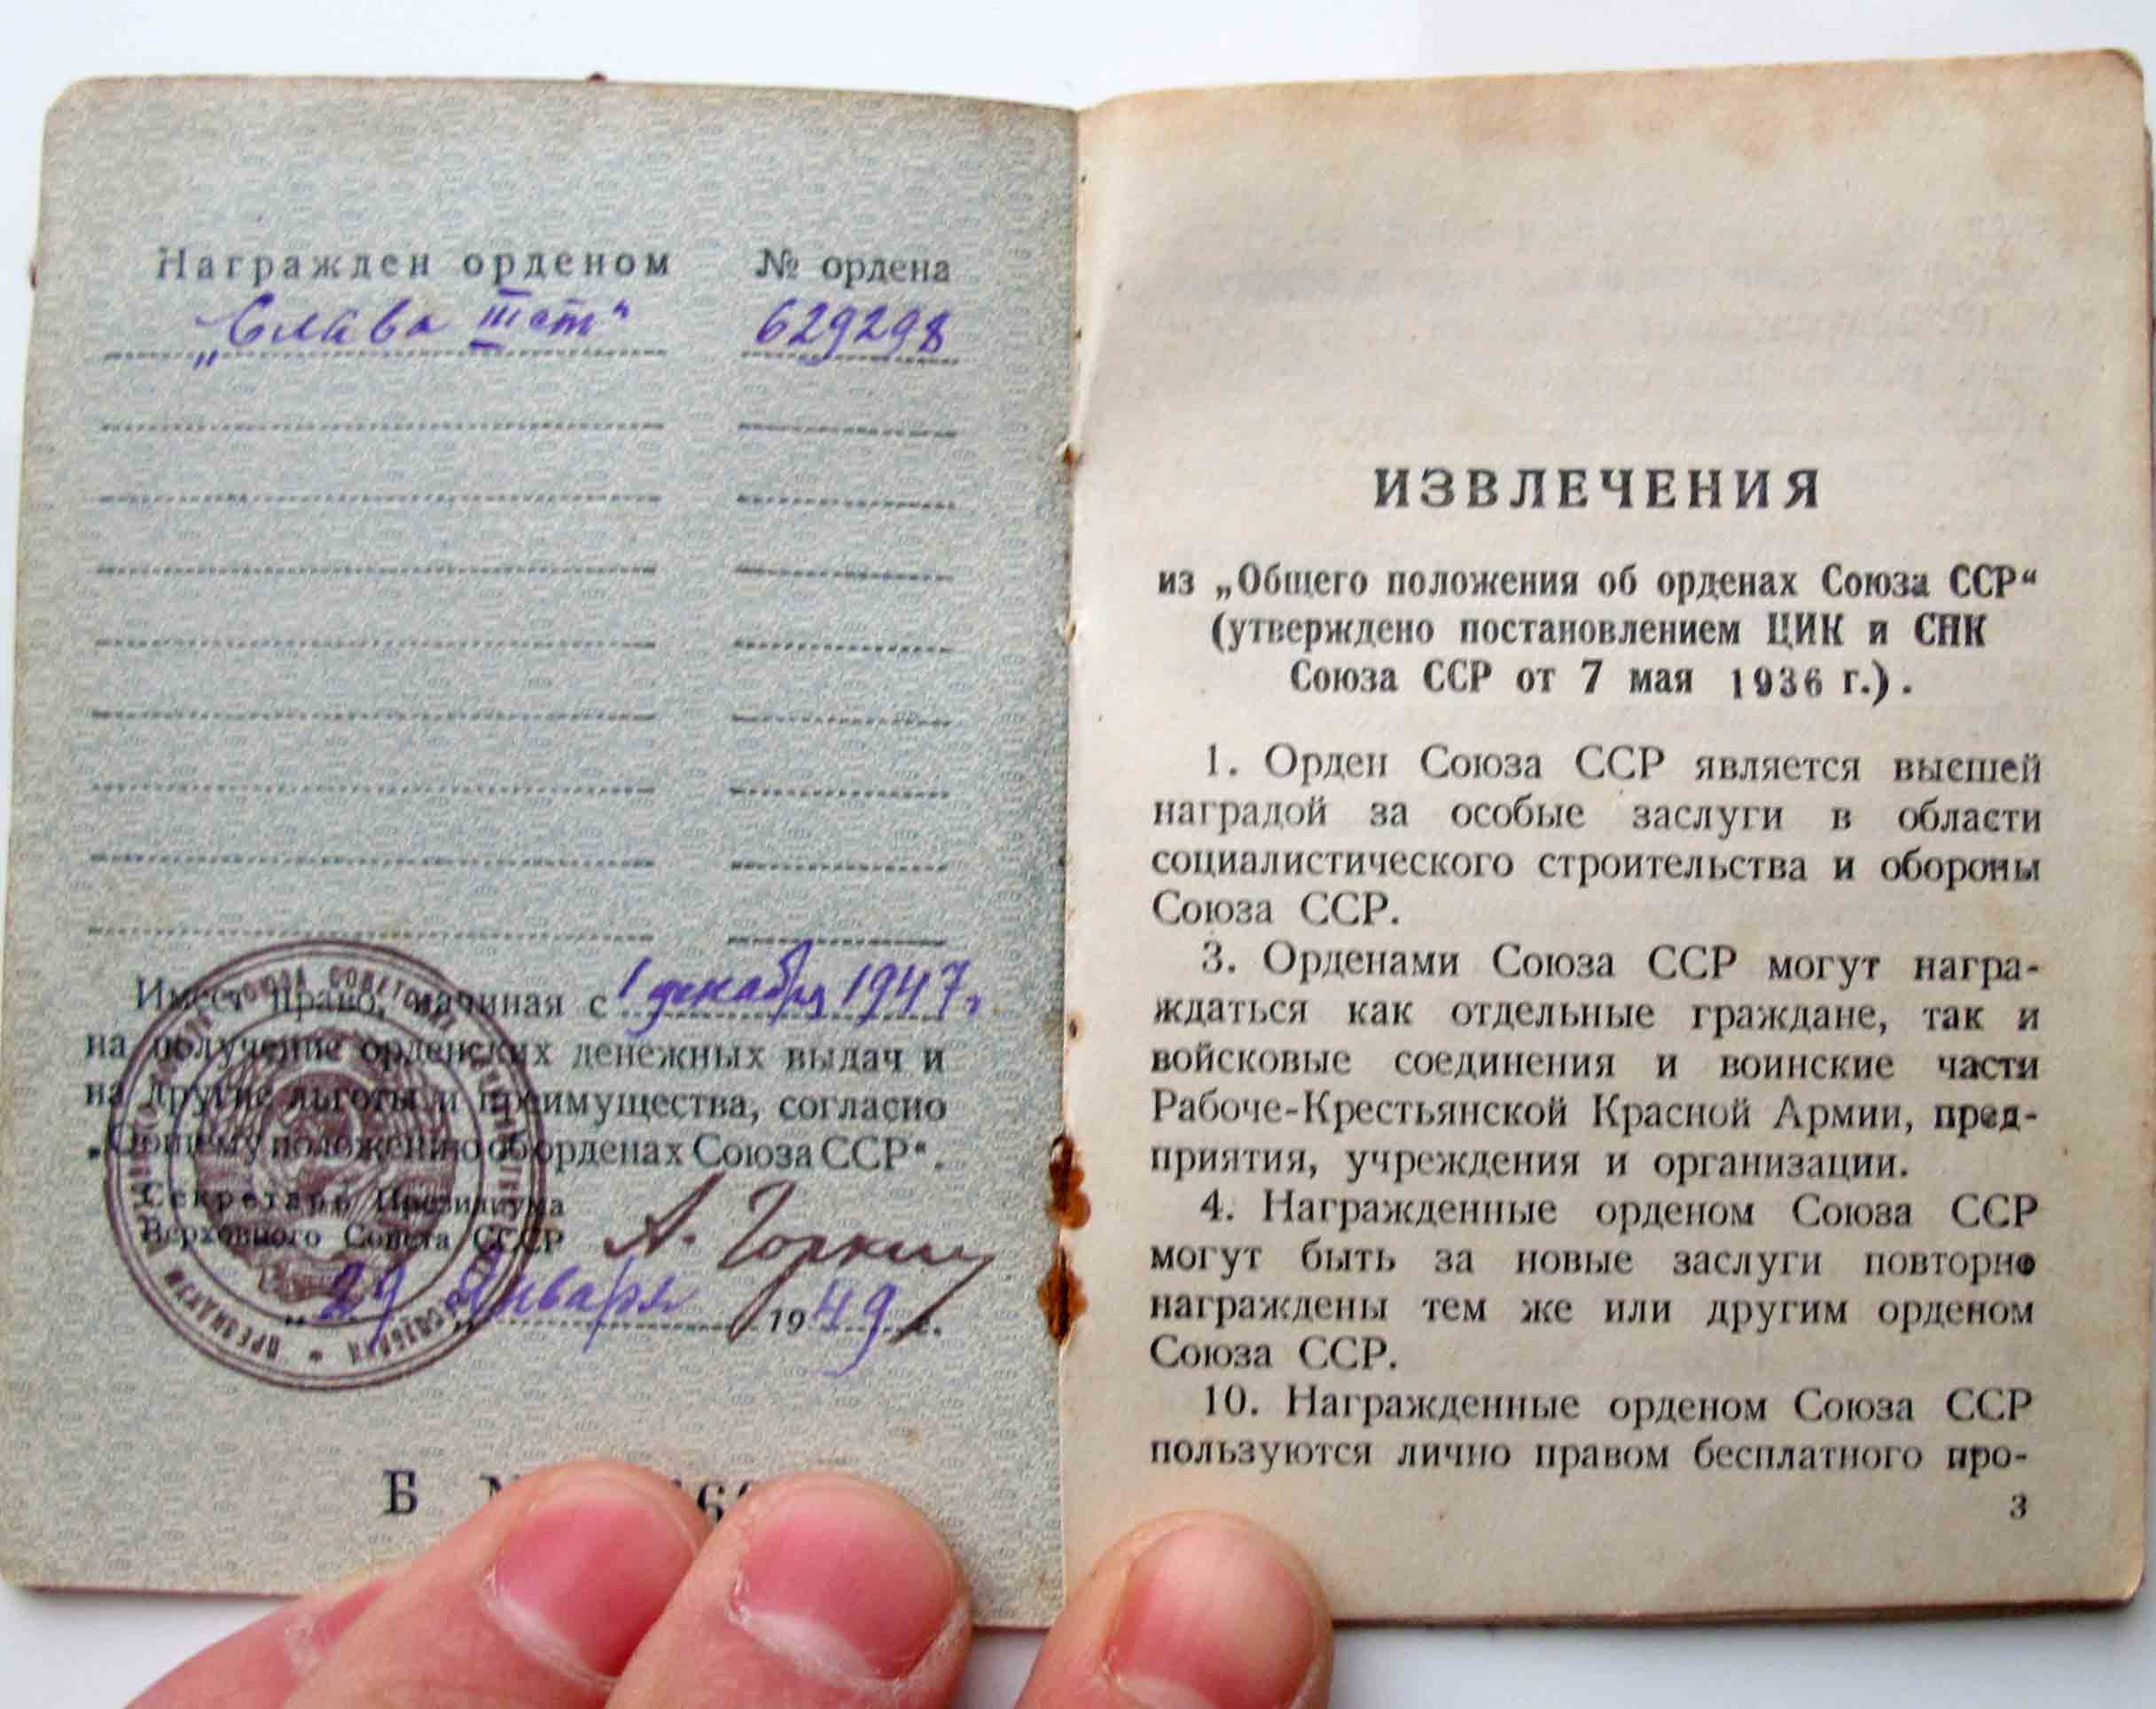 Награжден орденом № ордена
„Слава III ст“ 629298
Имеет право, начиная с 1 декабря 1947 г.
на получение орденских денежных выдач и
на другие льготы и преимущества, согласно
„Общему положению об орденах Союза ССР“.
Секретарь Президиума
Верховного Совета СССР А. Горкин
„29 Января 1949 г.
Б
ИЗВЛЕЧЕНИЯ
из „Общего положения об орденах Союза ССР“
(утверждено постановлением ЦИК и СНК
Союза ССР от 7 мая 1936 г.).
1. Орден Союза ССР является высшей
наградой за особые заслуги в области
социалистического строительства и обороны
Союза ССР.
3. Орденами Союза ССР могут награ-
ждаться как отдельные граждане, так и
войсковые соединения и воинские части
Рабоче-Крестьянской Красной Армии, пред-
приятия, учреждения и организации.
4. Награжденные орденом Союза ССР
могут быть за новые заслуги повторно
награждены тем же или другим орденом
Союза ССР.
10. Награжденные орденом Союза ССР
пользуются лично правом бесплатного про-
3